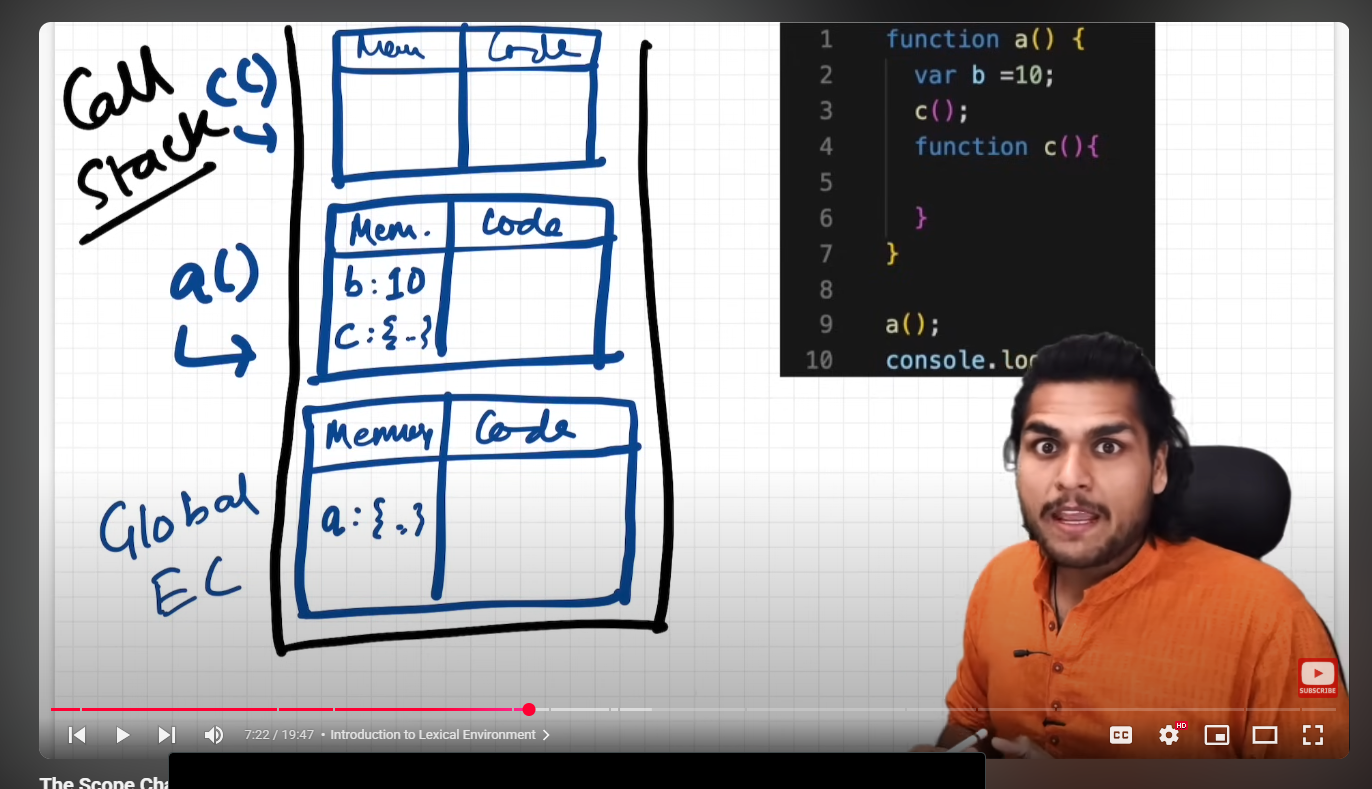 Call
Stack
c()
Mem Code
a()
Mem. Code
b:10
C:{-}
Global
EC
Memory Code
a:{.}
1 function a() {
2 var b =10;
3 c();
4 function c(){
5
6 }
7 }
8
9 a();
10 console.lo
SUBSCRIBE
7:22 / 19:47 • Introduction to Lexical Environment >
CC
HD
The Scope Cha